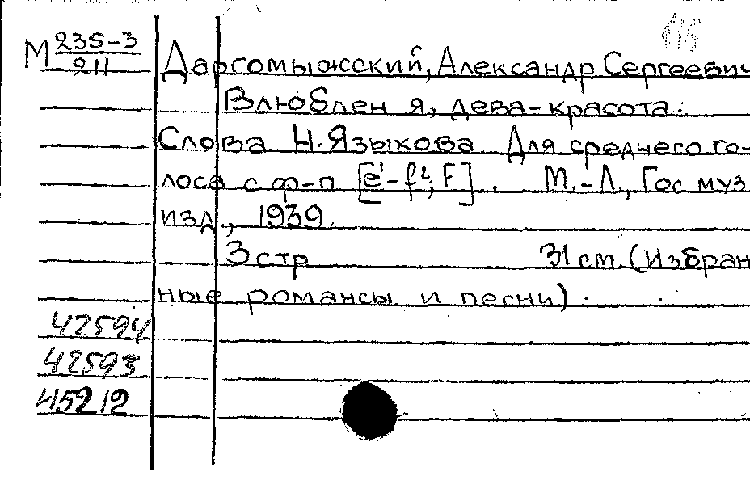 М 235-3
211
Даргомыжский, Александр Сергеевич
Влюблен я, дева-красота.
Слова Н. Языкова. Для среднего го-
лоса с ф-п [e¹-f², F]. М.-Л., Гос муз
изд, 1939.
3 стр 31 см. (Избран
ные романсы и песни).
42594
42593
45212